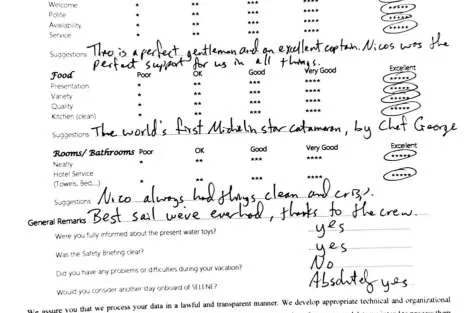 Welcome * ** *** **** *****
Polite * ** *** **** *****
Availability * ** *** **** *****
Service * ** *** **** *****
Suggestions Theo is a perfect gentleman and an excellent captain. Nicos was the
perfect support for us in all things.
Food Poor OK Good Very Good Excellent
Presentation * ** *** **** *****
Variety * ** *** **** *****
Quality * ** *** **** *****
Kitchen (clean) * ** *** **** *****
Suggestions The world's first Michelin star catamaran, by Chef George
Rooms/ Bathrooms Poor OK Good Very Good Excellent
Neatly * ** *** **** *****
Hotel Service
(Towels, Bed...) * ** *** **** *****
Suggestions Nico always had things clean and crisp.
General Remarks Best sail we've ever had, thanks to the crew.
Were you fully informed about the present water toys? yes
Was the Safety Briefing clear? yes
Did you have any problems or difficulties during your vacation? No
Would you consider another day onboard of SELENE? Absolutely yes
We assure you that we process your data in a lawful and transparent manner. We develop appropriate technical and organizational